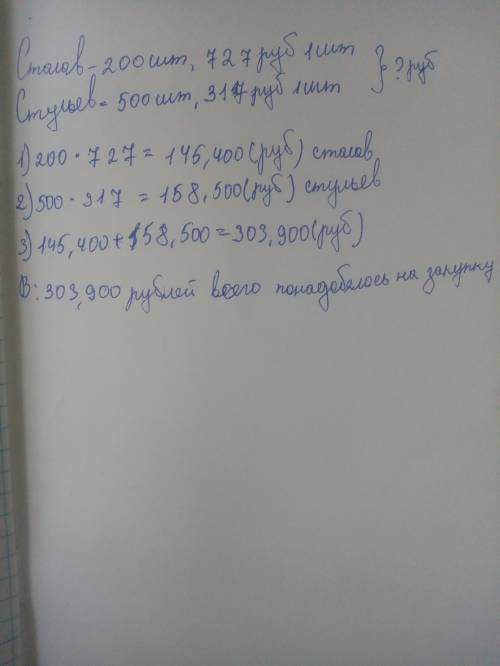 Сталав - 200 шт, 727 руб 1 шт } ? руб
Стульев = 500 шт, 317 руб 1 шт
1) 200 · 727 = 145,400 (руб) сталав
2) 500 · 317 = 158,500 (руб) стульев
3) 145,400 + 158,500 = 303,900 (руб)
В: 303,900 рублей всего понадобялось на закупку